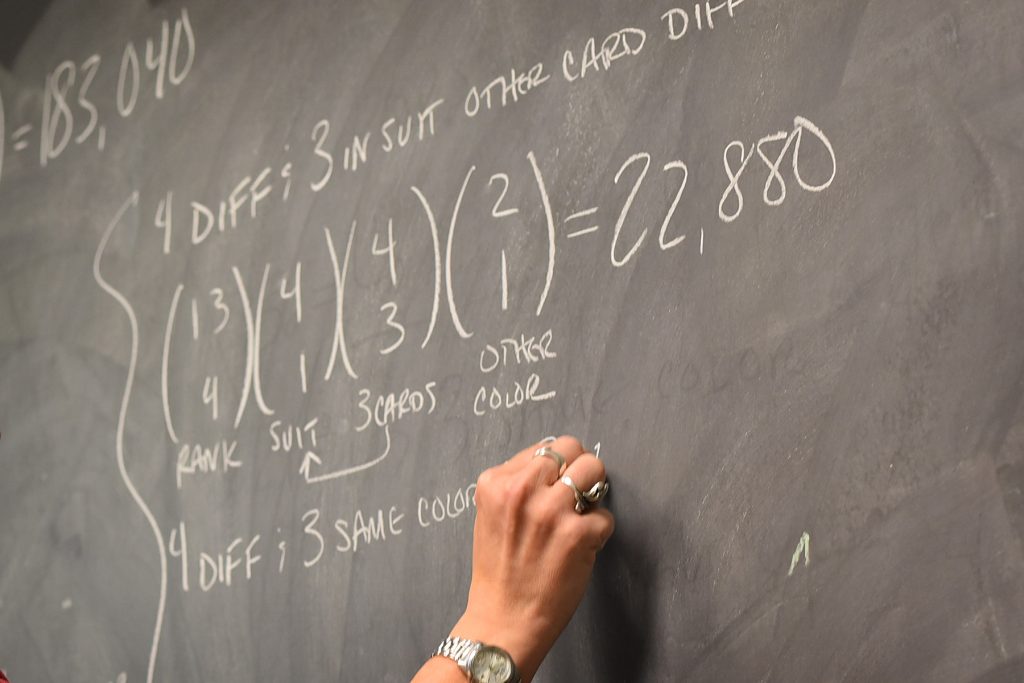 ) = 183,040
4 DIFF ; 3 IN SUIT OTHER CARD DIFF
(13 4) (4 1) (4 3) (2 1) = 22,880
RANK SUIT 3 CARDS OTHER COLOR
4 DIFF ; 3 SAME COLOR